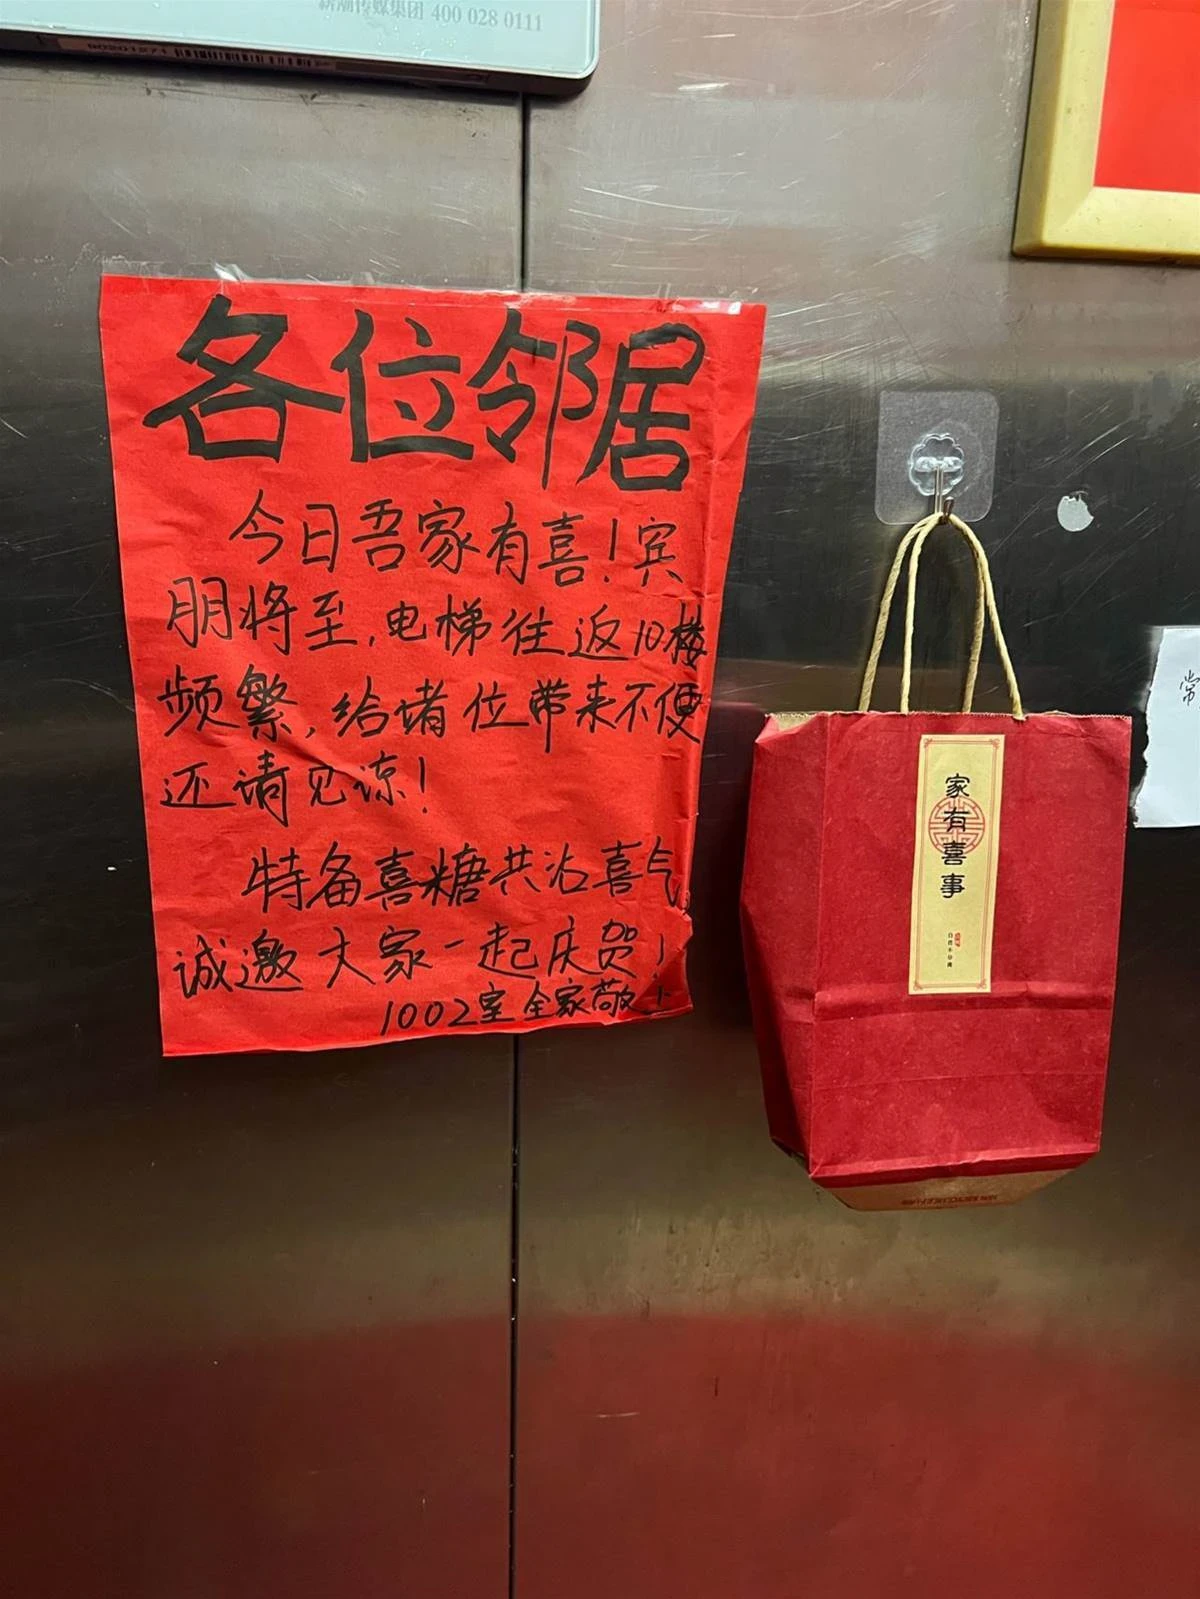 新潮传媒集团 400 028 0111
各位邻居
今日吾家有喜!宾
朋将至,电梯往返10楼
频繁,给堵位带来不便
还请见谅!
特备喜糖共沾喜气,
诚邀大家一起庆贺!
1002室全家敬上
家有喜事
常